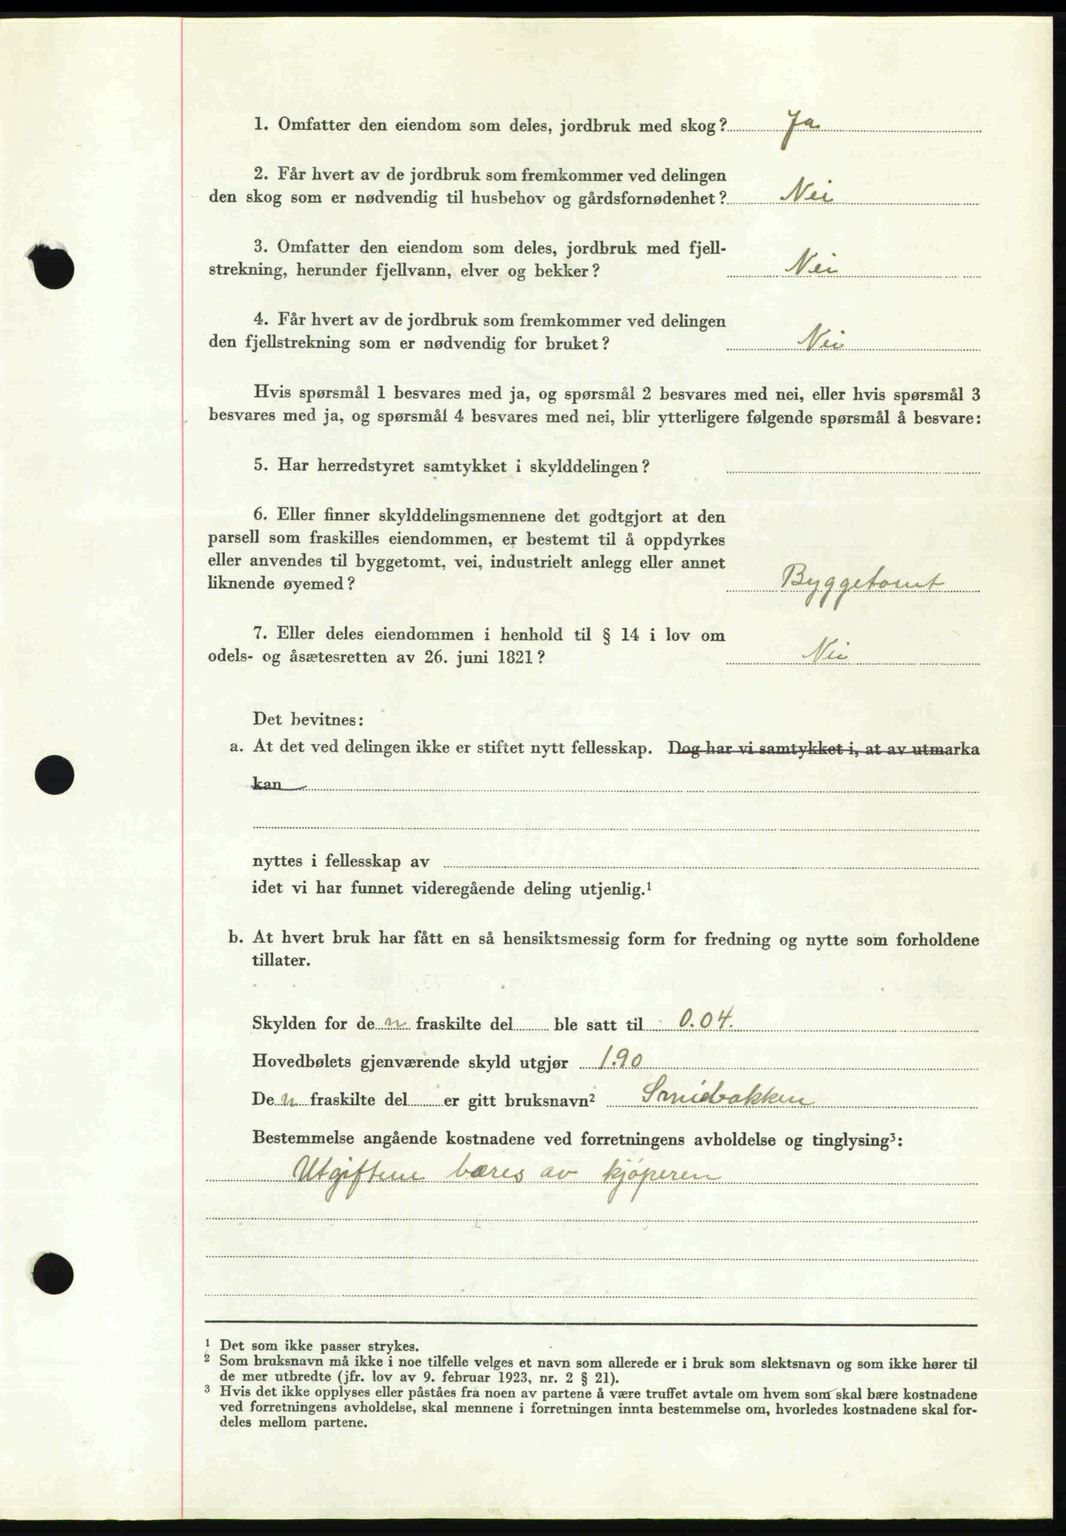 1. Omfatter den eiendom som deles, jordbruk med skog? Ja
2. Får hvert av de jordbruk som fremkommer ved delingen
den skog som er nødvendig til husbehov og gårdsfornødenhet? Nei
3. Omfatter den eiendom som deles, jordbruk med fjell-
strekning, herunder fjellvann, elver og bekker? Nei
4. Får hvert av de jordbruk som fremkommer ved delingen
den fjellstrekning som er nødvendig for bruket? Nei
Hvis spørsmål 1 besvares med ja, og spørsmål 2 besvares med nei, eller hvis spørsmål 3
besvares med ja, og spørsmål 4 besvares med nei, blir ytterligere følgende spørsmål å besvare:
5. Har herredstyret samtykket i skylddelingen?
6. Eller finner skylddelingsmennene det godtgjort at den
parsell som fraskilles eiendommen, er bestemt til å oppdyrkes
eller anvendes til byggetomt, vei, industrielt anlegg eller annet
liknende øyemed? Byggetomt
7. Eller deles eiendommen i henhold til § 14 i lov om
odels- og åsætesretten av 26. juni 1821? Nei
Det bevitnes:
a. At det ved delingen ikke er stiftet nytt fellesskap. Dog har vi samtykket i, at av utmarka
kan
nyttes i fellesskap av
idet vi har funnet videregående deling utjenlig.¹
b. At hvert bruk har fått en så hensiktsmessig form for fredning og nytte som forholdene
tillater.
Skylden for de n fraskilte del ble satt til 0.04.
Hovedbølets gjenværende skyld utgjør 1.90
De n fraskilte del er gitt bruksnavn² Smidbakken
Bestemmelse angående kostnadene ved forretningens avholdelse og tinglysing³:
Utgiftene bæres av kjöperen
¹ Det som ikke passer strykes.
² Som bruksnavn må ikke i noe tilfelle velges et navn som allerede er i bruk som slektsnavn og som ikke hører til
de mer utbredte (jfr. lov av 9. februar 1923, nr. 2 § 21).
³ Hvis det ikke opplyses eller påståes fra noen av partene å være truffet avtale om hvem som skal bære kostnadene
ved forretningens avholdelse, skal mennene i forretningen innta bestemmelse om, hvorledes kostnadene skal for-
deles mellom partene.